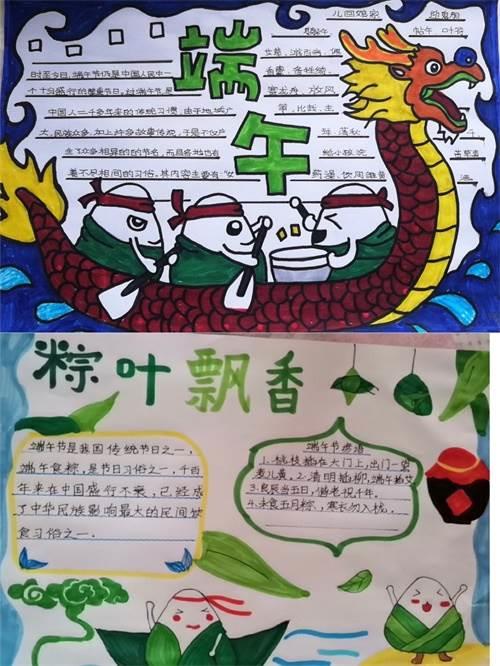 端午
儿回娘家
时至今日,端午节仍是中国人民中一
个十分盛行的隆重节日。过端午节,是
中国人二千多年来的传统习惯,由于地域广
大,民族众多,加上许多故事传说,于是不仅产
生了众多相异的节名,而且各地也有
着不尽相同的习俗。其内容主要有:女
悬钟
游百病,佩
香囊,备牲醴,
赛龙舟,放风
比武,击
球,荡秋
给小孩涂
药酒,饮用雄黄
粽叶飘香
端午节是我国传统节日之一,
端午食粽,是节日习俗之一,千百
年来在中国盛行不衰,已经成
了中华民族影响最大的民间饮
食习俗之一.
端午节谚语
1.桃枝插在大门上,出门一望
麦儿黄。2.清明插柳,端午插艾
3.良辰当五日,偕老祝千年.
4.未食五月粽,寒衣勿入栊。